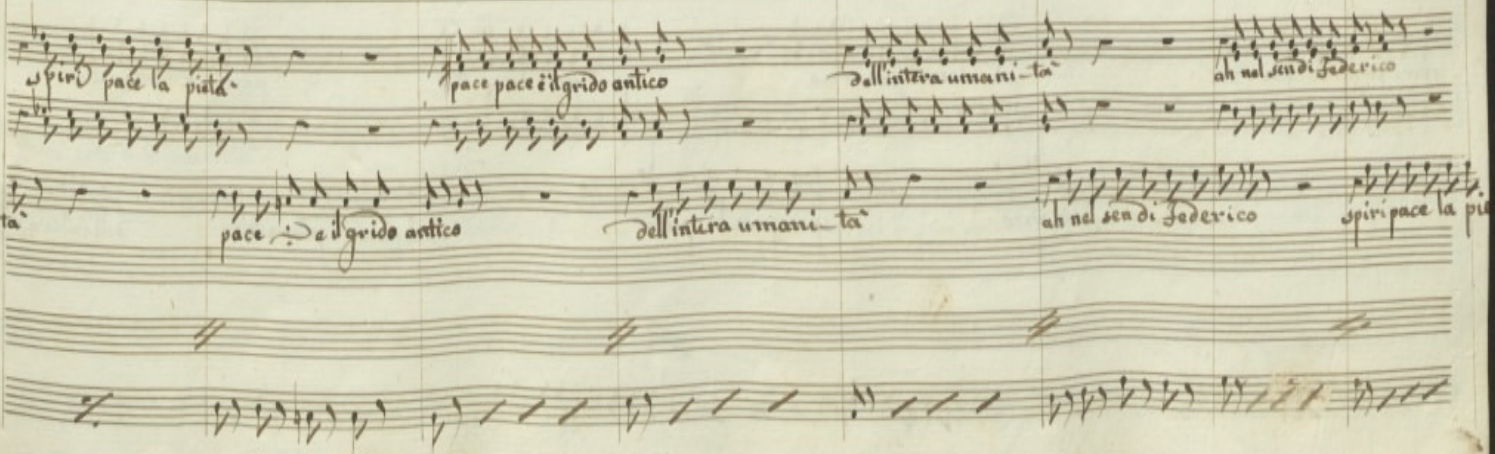 spiri pace la pietà
pace pace è il grido antico
dell'intera umani-tà
ah nel sen di federico
tà
pace e il grido antico
dell'intera umani-tà
ah nel sen di federico
spiri pace la pie